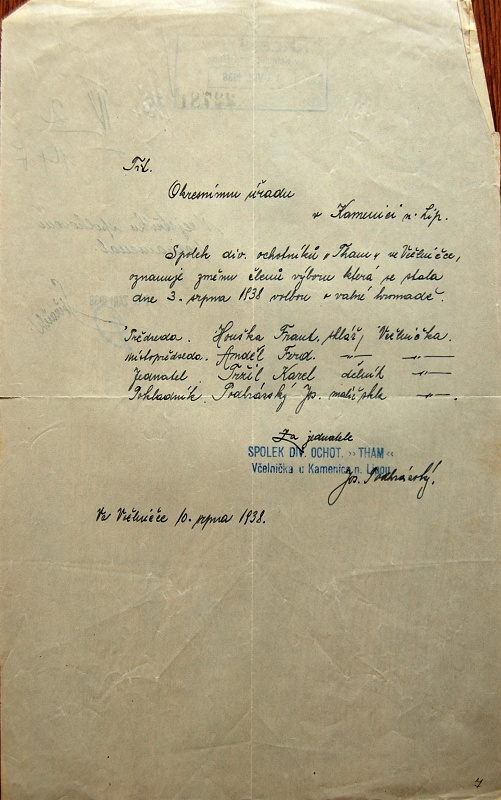 Tit.
Okresnímu úřadu
v Kamenici n. Lip.
Spolek div. ochotníků „Tham" ve Včelničce,
oznamuje změnu členů výboru která se stala
dne 3. srpna 1938 volbou v valné hromadě.
Předseda. Houška Frant. sklář, Včelnička.
místopředseda. Anděl Ferd. –„– –„–
Jednatel Pržil, Karel dělník –„–
Pokladník. Podhrázský Jos. malíř skla –„–.
Za jednatele
SPOLEK DIV. OCHOT. „ THAM “
Včelnička u Kamenice n. Lipou
Jos. Podhrázský.
Ve Včelničce 10. srpna 1938.
7